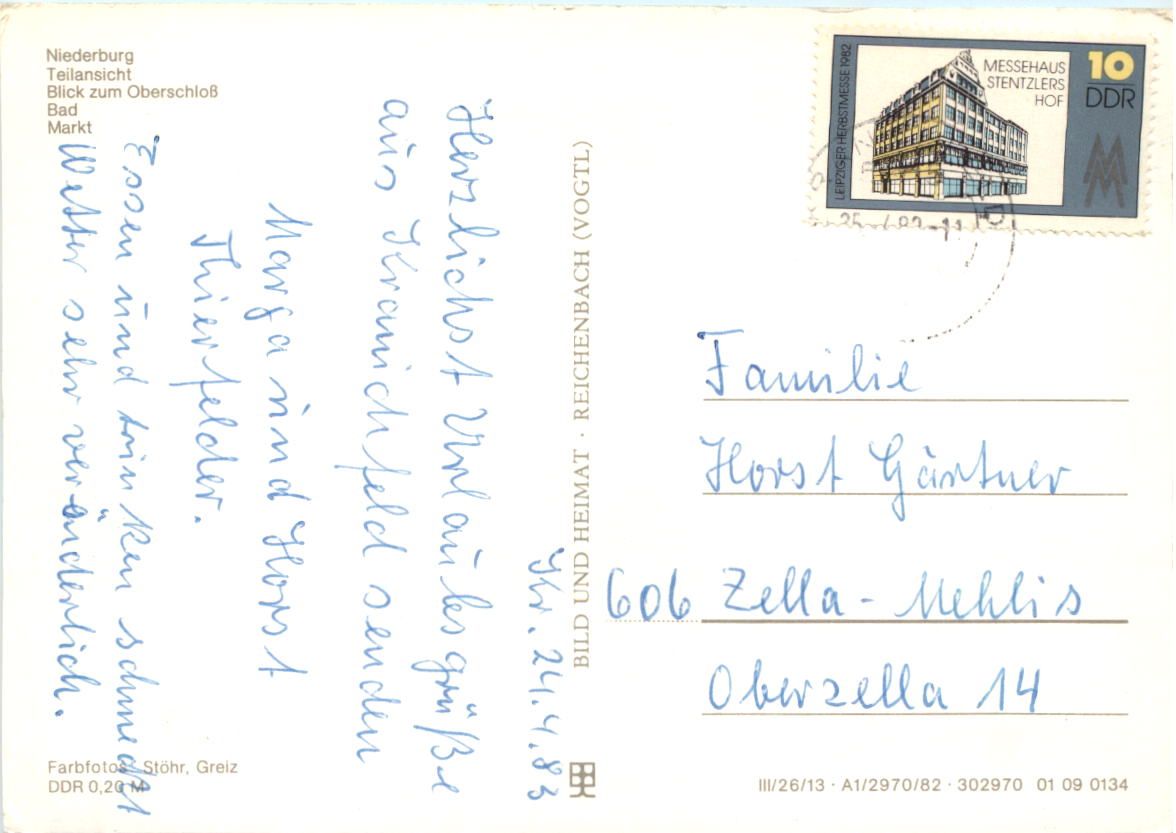 Niederburg
Teilansicht
Blick zum Oberschloß
Bad
Markt
Kr. 24.4.83
Herzlichst Urlaubsgrüße
aus Kranichfeld senden
Marga und Horst
Thierfelder.
Essen und trinken schmeckt
Wetter sehr veränderlich.
Farbfotos: Stöhr, Greiz
DDR 0,20 M
BILD UND HEIMAT · REICHENBACH (VOGTL)
LEIPZIGER HERBSTMESSE 1982
MESSEHAUS
STENTZLERS
HOF
10
DDR
MM
Familie
Horst Gärtner
606 Zella-Mehlis
Oberzella 14
III/26/13 · A1/2970/82 · 302970 01 09 0134